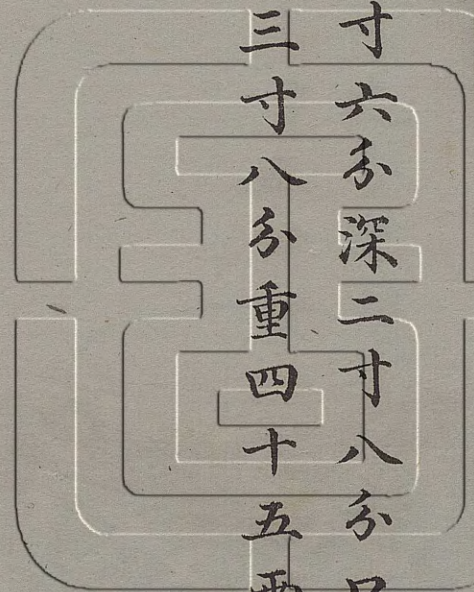 寸六分深二寸八分口
三寸八分重四十五兩